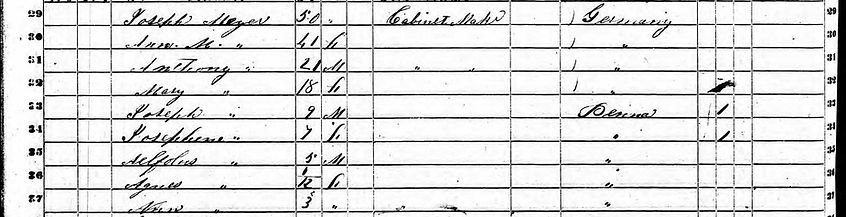 29 Joseph Meyer 50 " Cabinet Makr ) Germany 29
30 Ann. M. " 41 f ) " 30
31 Anthony " 21 M " " ) " 31
32 Mary " 18 f ) " 32
33 Joseph " 9 M Penna 1 33
34 Josephine " 7 f " 1 34
35 " 5 M " 35
36 Agnes " f " 36
37 " 3 " " 37